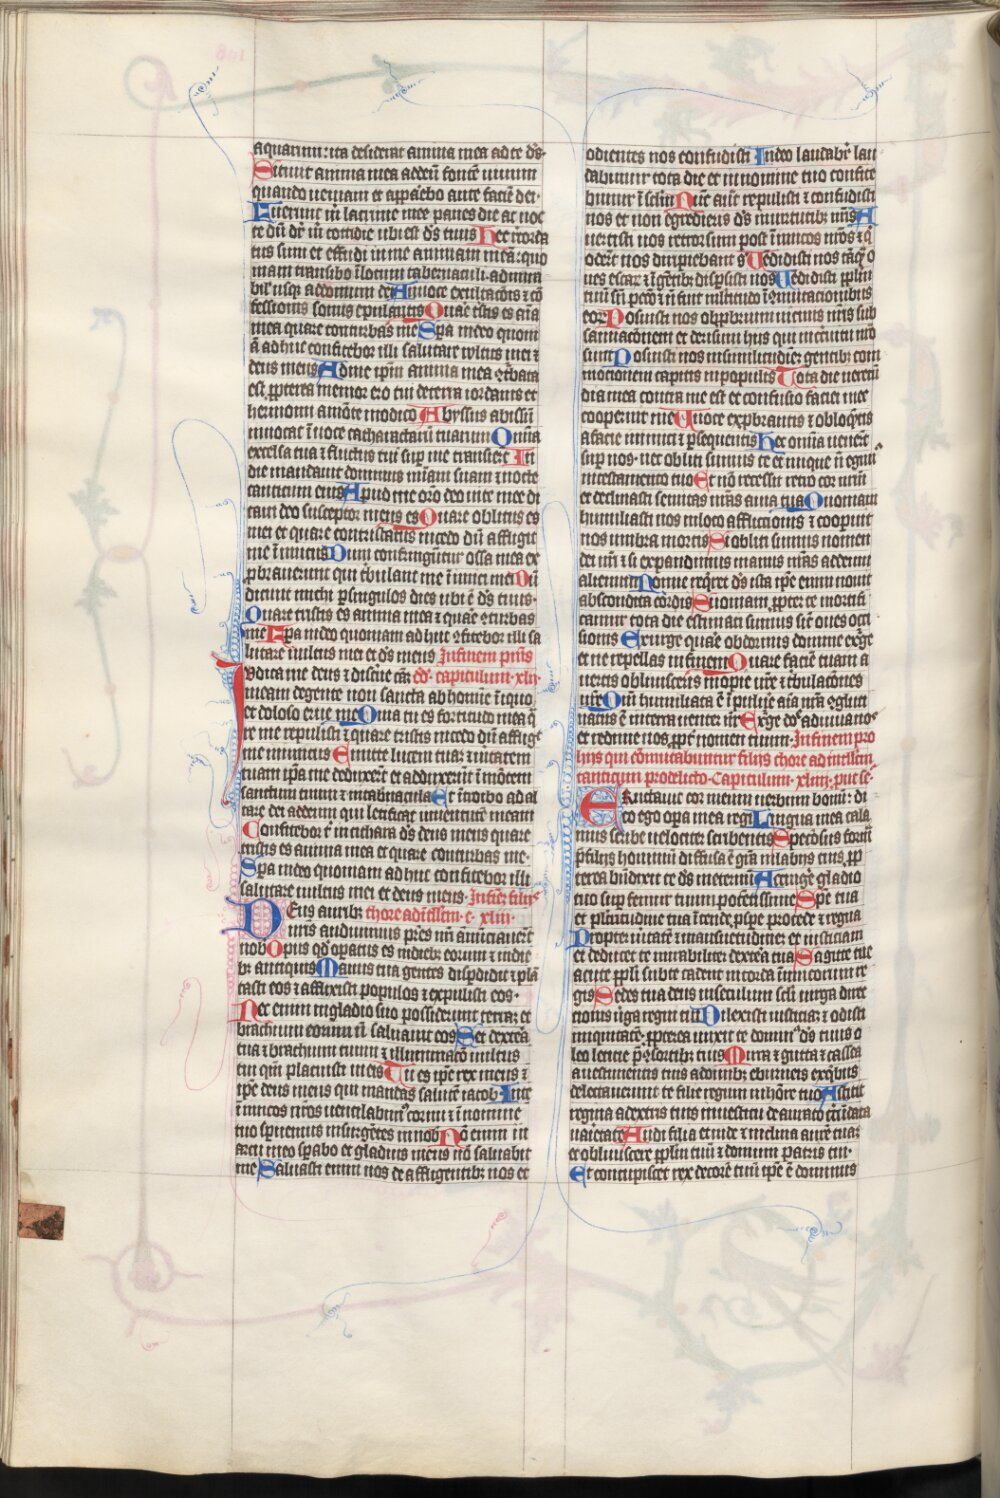 aquarum: ita desiderat anima mea ad te ds̄·
Sitiuit anima mea ad deū fontē uiuum
quando ueniam et apparebo ante faciē dei·
Fuerunt m̄ lacrime mee panes die ac noc
te dū dr̄ m̄ cotidie ubi est ds̄ tuus Hec recorda
tus sum et effudi in me animam meā: quo
niam transibo ī locum tabernaculi admira
bil' usq; ad domum dei In uoce exultacōis et cō
fessionis sonus epulantis Quāe tristis es aīa
mea quare conturbas me Spa in deo quoni
ā adhuc confitebor illi salutare wltus mei ⁊
deus meus Ad me ipm̄ anima mea ꝯtˢbata
est ꝓpterea memor ero tui de terra iordanis et
hermonii a mōte modico Abyssus abissū
inuocat ī uoce catharactarū tuarum Omīa
excelsa tua ⁊ fluctus tui sup me transierūt In
die mandauit dominus miām suam ⁊ nocte
canticum eius Apud me orō deo uite mee di
cam deo susceptor meus es Quare oblitus es
mei et quare contristatus incedo dū affligit
me īimicus Dum confringūtur ossa mea ex
ꝓbrauerunt qui tˢbulant me īimici mei Dū
dicunt michi p singulos dies ubi ē ds̄ tuus·
Quare tristis es anima mea ⁊ quāe ꝯturbas
me Spa in deo quoniam adhuc ꝯfitebor illi sa
lutare uultus mei et ds̄ meus In finem p̄mus
Iudica me deus ⁊ discerne cām dd̄· capitulum· xlij·
meam de gente non sancta ab homine īiquo
et doloso erue me Quia tu es fortitudo mea q̄
re me repulisti ⁊ quare tristis incedo dū affligit
me inimicus Emitte lucem tuā ⁊ ūitatem
tuam ipā me deduxerūt et adduxerūt ī mōtem
sanctum tuum ⁊ in tabnacula Et ītroibo ad al
tare dei ad deum qui letificat iuuentutē meam
Confitebor t̄ in cithara ds̄ deus meus quare
tristis es anima mea et quare conturbas me·
Spa in deo quoniam adhuc confitebor illi
salutare uultus mei et deus meus· In finē filijs
Deus aurib; chore ad itllcm· c· xliij·
nris̄ audiuimus pr̄es nr̄i annūciauerūt
nob Opus qd̄ opatus es in dieb; eorum ⁊ in die
b; antiquis Manus tua gentes disp̄didit ⁊ plā
tasti eos ⁊ afflixisti populos ⁊ expulisti eos·
Nec enim in gladio suo possiderunt terrā: et
brachium eorum nō saluauit eos Set dextera
tua ⁊ brachium tuum ⁊ illuminacō uultus
tui qm̄ placuisti in eis Tu es ipe rex meus ⁊
ipe deus meus qui mandas salutē iacob In te
ī imicos nr̄os uentilabimˀ cornu ⁊ ī nomine
tuo spnemus insurgētes in nob Nō enim in
arcu meo spabo et gladius meus nō saluabit
me Saluasti enim nos de affligentib; nos et
odientes nos confudisti In deo laudabr̄ lau
dabimur tota die et in nomine tuo confite
bimur ī sclm̄ Nūc aut repulisti ⁊ confudisti
nos et non egredieris ds̄ in uirtutib; nr̄is A
uertisti nos retrorsum post īimicos nr̄os ⁊ q̄
oderūt nos diripiebant s' Dedidisti nos tāq̄ o
ues escar ⁊ ī gētib; dispsisti nos Uēdidisti pplm̄
tuū sn̄ pcō ⁊ n̄ fuit multitudo ī ꝯmutacionibus
eorꝝ Posuisti nos obprbrium uicinis nr̄is sub
sannacōnem et derisum hiis qui in circuitu nr̄o
sunt Posuisti nos in similitudinē gentib; com
mocionem capitis in populis Tota die uerecū
dia mea contra me est et confusio faciei mee
cooperuit me A uoce exprobrantis ⁊ obloq̄ntis
a facie inimici ⁊ psequentis Hec omīa uenerūt
sup nos· nec obliti sumus te et inique n̄ egimˀ
in testamento tuo Et nō recessit retro cor nr̄m
et declinasti semitas nr̄as a uia tua Quoniam
humiliasti nos in loco afflictionis ⁊ coopuit
nos umbra mortis Si obliti sumus nomen
dei nr̄i ⁊ si expandimus manus nr̄as ad deum
alienum Nonne reqret ds̄ ista ipe enim nouit
abscondita cordis Quoniam ꝓpter te mortifi
camur tota die estimati sumus sic̄ oues occi
sionis Exurge quāe obdormis domine exge
et ne repellas in finem Quare faciē tuam a
uertis obliuisceris inopie nr̄e ⁊ tˢbulacōnes
nr̄e Qm̄ humiliata ē ī puluē aīa nr̄a ꝯglut
inatus ē in terra uenter nr̄ Exge dn̄e adiuua nos
et redime nos ꝓpt̄ nomen tuum· In finem pro
hijs qui cōmutabuntur filijs chore ad intllcm̄,
canticum pro dilecto· Capitulum· xliiij· put se·
Eructauit cor meum uerbum bonū: di
co ego opa mea regi Lingua mea cala
mus scribe uelociter scribentis Speciosus formā
p̄ filijs hominū diffusa ē gr̄a in labijs tuis ꝓp
terea bn̄dixit te ds̄ in eternū Accingere gladio
tuo sup femur tuum potentissime Spē tua
et pulcritudine tua ītende pspe procede ⁊ regna
Propter ūitatē ⁊ mansuetudinē: et iusticiam
et deducet te mirabiliter dextera tua Sagitte tue
acute ppli sub te cadent in corda inimicorum re
gis Sedes tua deus in seculum scli uirga dirre
cionis uirga regni tui Dilexisti iusticiā: ⁊ odisti
iniquitatē· ꝓpterea unxit te deus ds̄ tuus o
leo leticie p̄ ꝯsortib; tuis Mirra ⁊ gutta ⁊ cassia
a uestimentis tuis a domib; eburneis ex qbus
delectauerunt te filie regum in honore tuo Astitit
regina a dextris tuis in uestitu deaurato circūdata
uarietate Audi filia et uide ⁊ inclina aurē tuā:
et obliuiscere pplm tuū ⁊ domum patris tui·
Et concupiscet rex decorē tuū ipe ē dominus